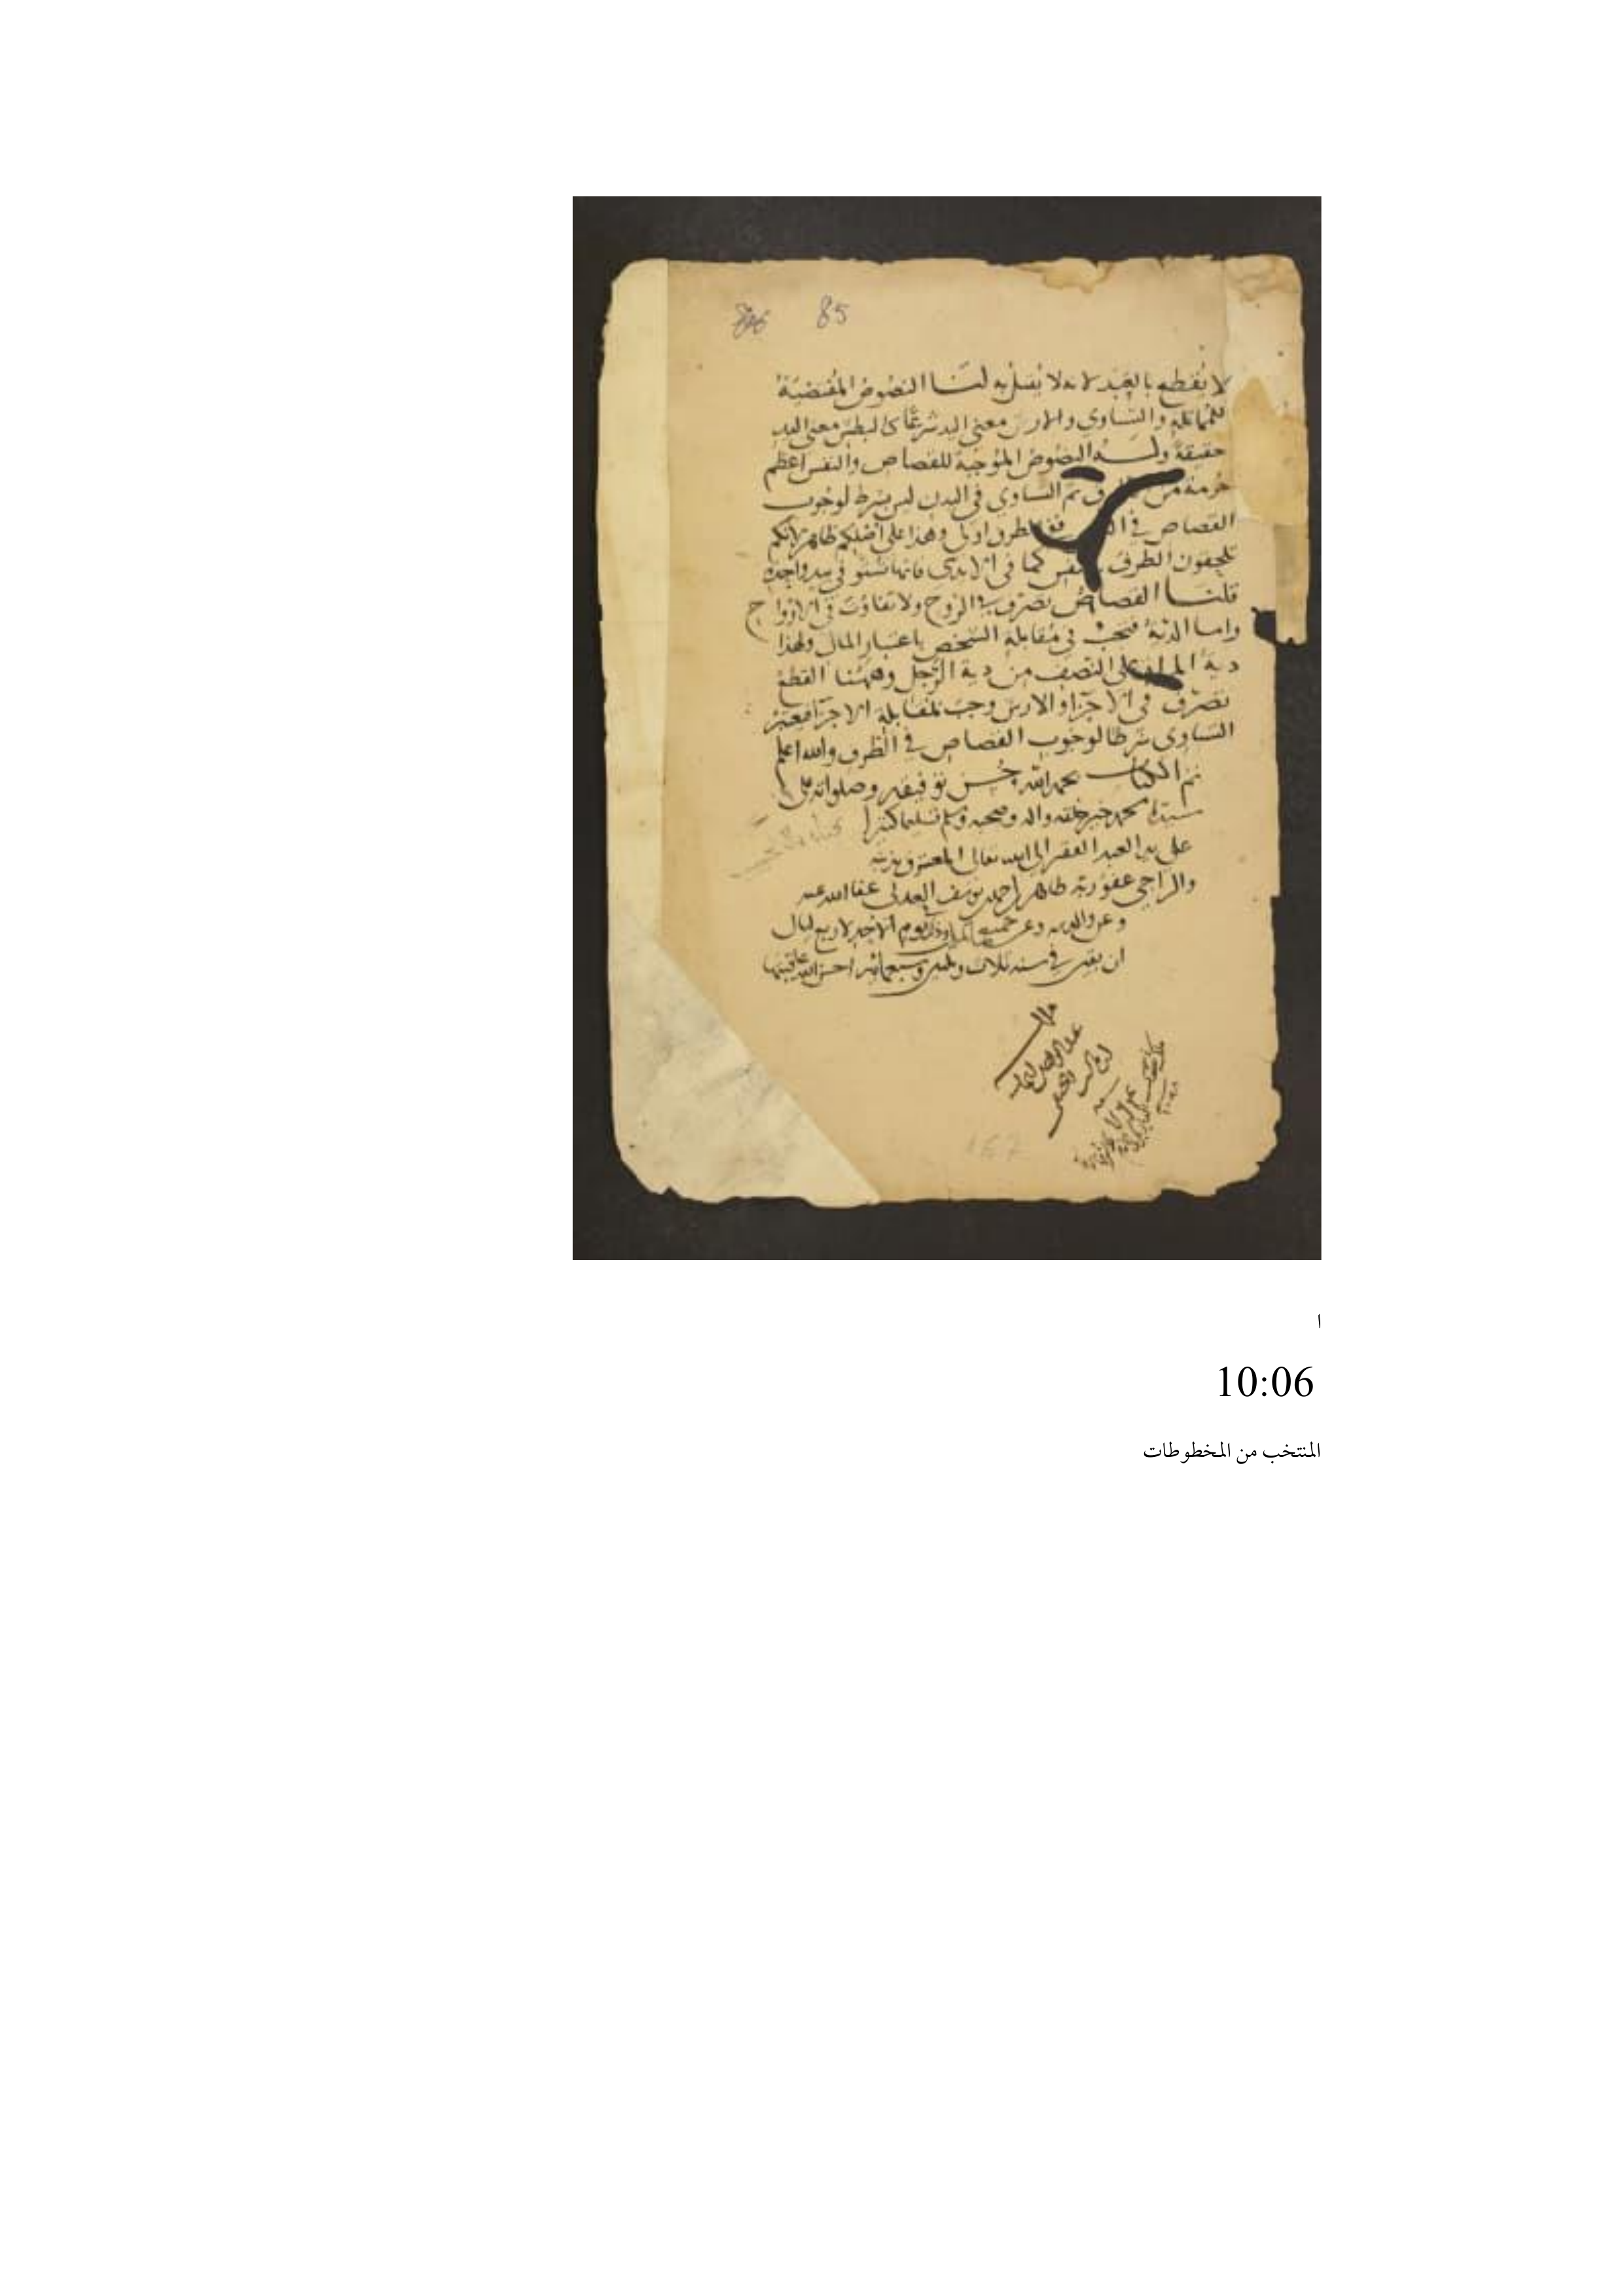 85
لا يُقطع بالعبد لانه لا يقتل به لنا النصوص المقتضية
للمماثلة والتساوى والارش معنى اليد شرعًا كالبطش معنى اليد
حقيقة وله النصوص الموجبة للقصاص والنفس اعظم
حرمة من ثم التساوى فى البدن ليس بشرط لوجوب
القصاص في اولى وهذا على اصلكم ظاهر لانكم
تلحقون الطرف كما فى الايدى فانها تستوفى بيد واحدة
قلنا القصاص تصرف في الروح ولا تفاوت فى الارواح
واما الدية فتجب فى مقابلة الشخص باعتبار المال ولهذا
دية على النصف من دية الرجل وههنا القطع
تصرف فى الاجزا والارش وجب لمقابلة الاجزا فيعتبر
التساوى شرطا لوجوب القصاص في الطرف والله اعلم
تم الكتاب بحمد الله وحسن توفيقه وصلواته على
سيدنا محمد خير خلقه واله وصحبه وسلم تسليما كثيرا
على يد العبد الفقير الى الله تعالى المعترف بذنبه
والراجى عفو ربه طاهر بن احمد بن يوسف العدلى عفا الله عنه
وعن والديه وعن جميع المسلمين وذلك يوم الاحد لاربع ليال
ان بقين في سنه ثلاث وثلثين وسبعمائه احسن الله عاقبتها
167
ا
10:06
المنتخب من المخطوطات